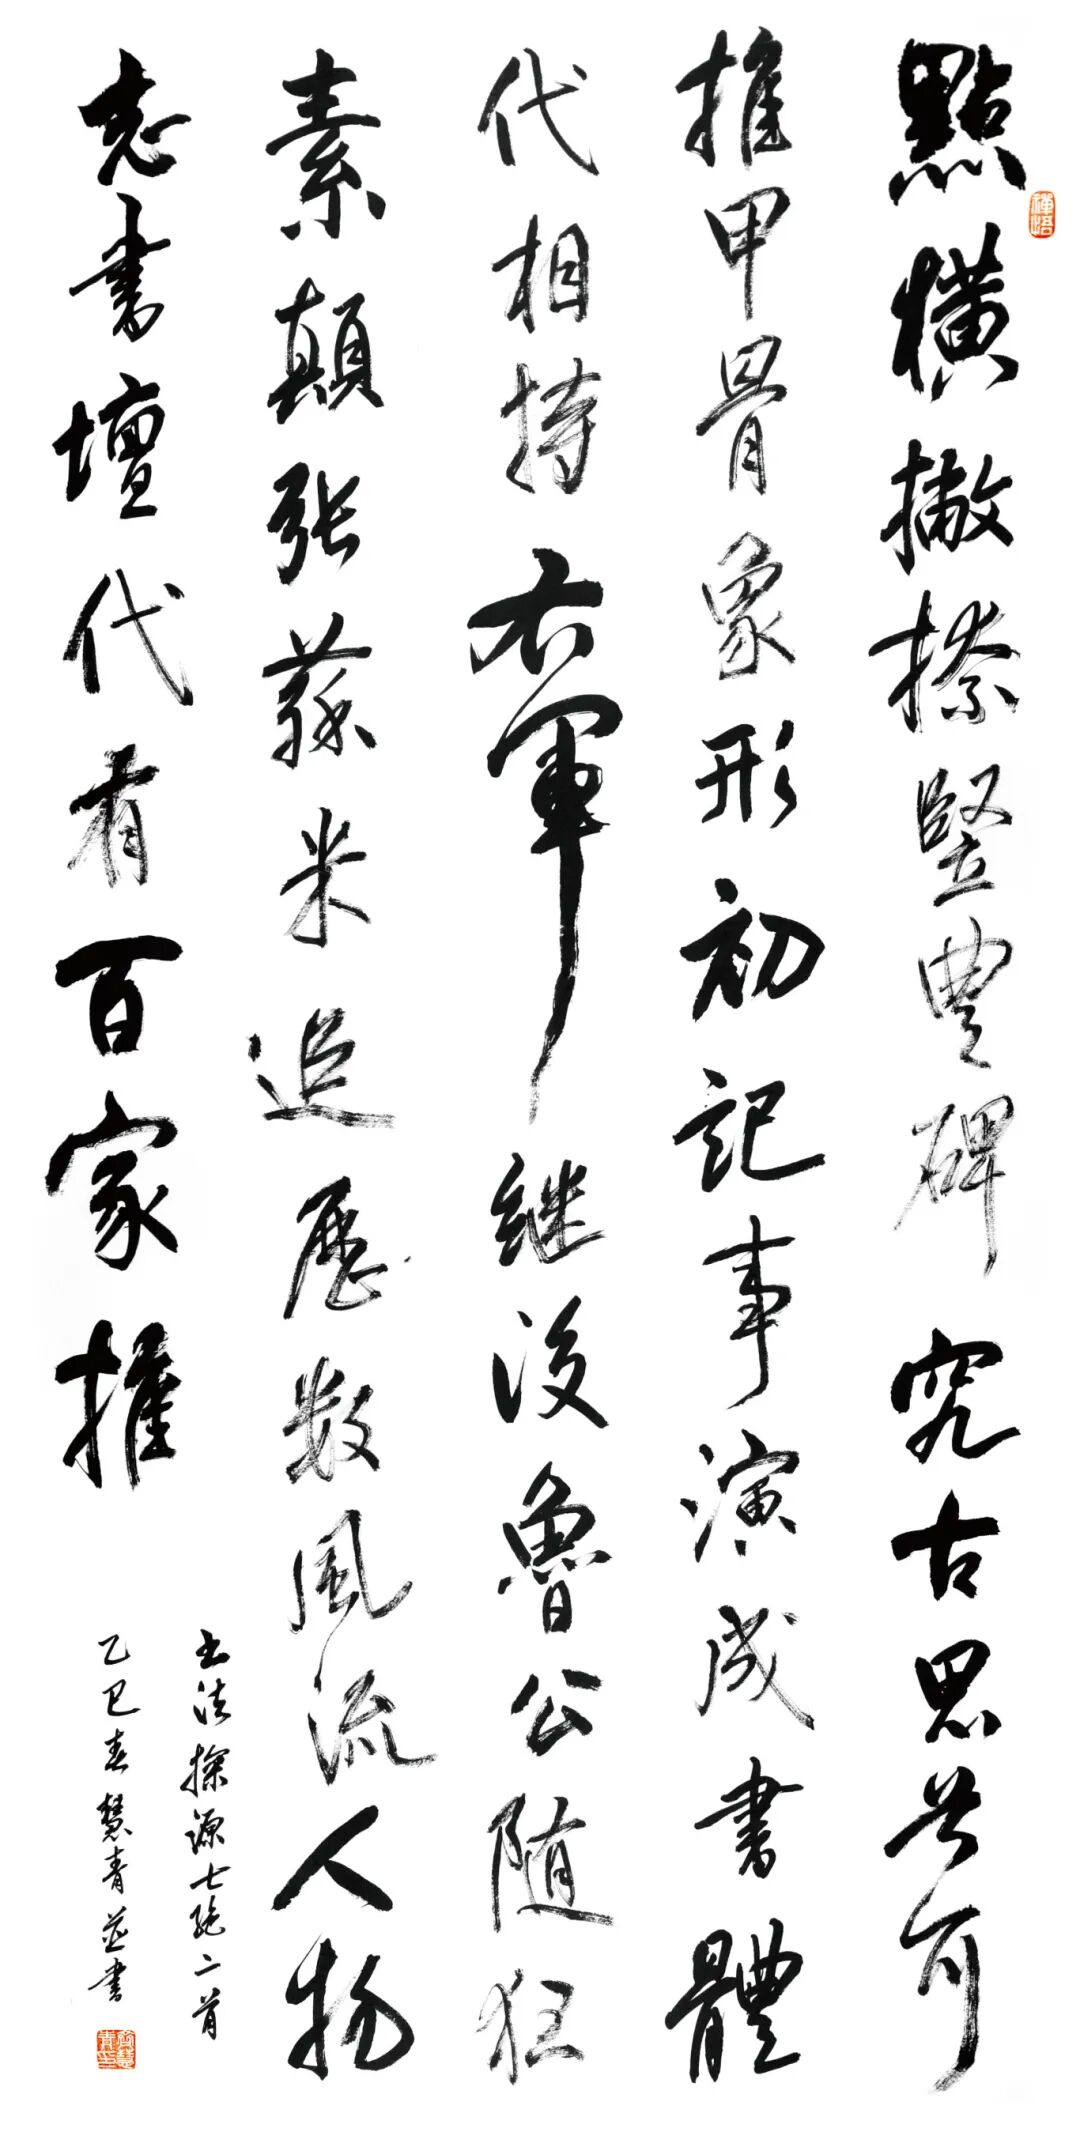 點橫撇捺竪豐碑究古思昔可
推甲骨象形初記事演成書體
代相持右軍继後魯公随狂
素顛張蘇米追歷數風流人物
志書壇代有百家推
书法探源七绝二首
乙巳春慧青並書